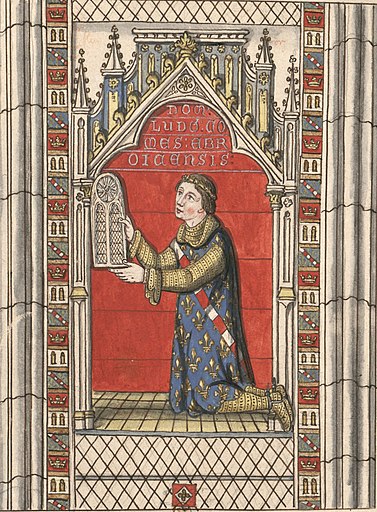 DOM:
LUDO: CO
MES: EBR
OICENSIS: